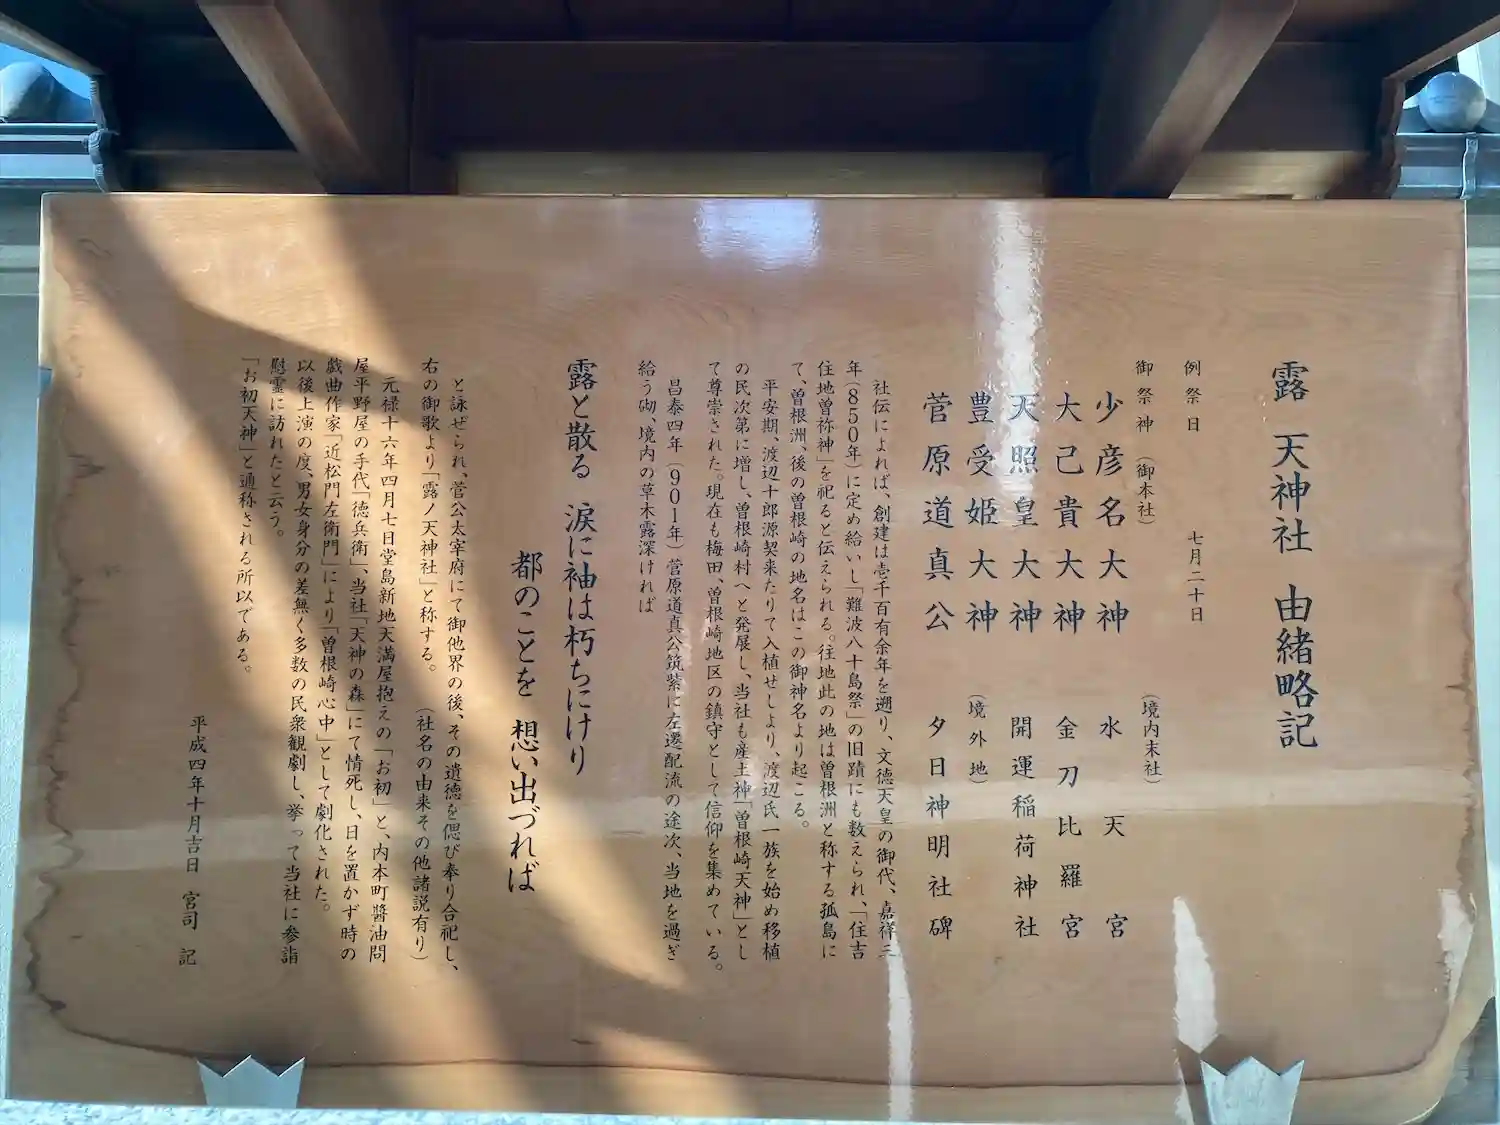 露 天神社 由緒略記
例祭日 七月二十日
御祭神(御本社)
少彦名大神
大己貴大神
天照皇大神
豊受姫大神
菅原道真公
(境内末社)
水天宮
金刀比羅宮
開運稲荷神社
(境外地)
夕日神明社碑
社伝によれば、創建は壱千百有余年を遡り、文徳天皇の御代、嘉祥三
年(850年)に定め給いし「難波八十島祭」の旧蹟にも数えられ、「住吉
住地曽祢神」を祀ると伝えられる。往地此の地は曽根洲と称する孤島に
て、曽根洲、後の曽根崎の地名はこの御神名より起こる。
平安期、渡辺十郎源契来たりて入植せしより、渡辺氏一族を始め移植
の民次第に増し、曽根崎村へと発展し、当社も産土神「曽根崎天神」とし
て尊崇された。現在も梅田、曽根崎地区の鎮守として信仰を集めている。
昌泰四年(901年)菅原道真公筑紫に左遷配流の途次、当地を過ぎ
給う砌、境内の草木露深ければ
露と散る 涙に袖は朽ちにけり
都のことを 想い出づれば
と詠ぜられ、菅公太宰府にて御他界の後、その遺徳を偲び奉り合祀し、
右の御歌より「露ノ天神社」と称する。(社名の由来その他諸説有り)
元禄十六年四月七日堂島新地天満屋抱えの「お初」と、内本町醬油問
屋平野屋の手代「徳兵衛」、当社「天神の森」にて情死し、日を置かず時の
戯曲作家「近松門左衛門」により「曽根崎心中」として劇化された。
以後上演の度、男女身分の差無く多数の民衆観劇し、挙って当社に参詣
慰霊に訪れたと云う。
「お初天神」と通称される所以である。
平成四年十月吉日 宮司 記